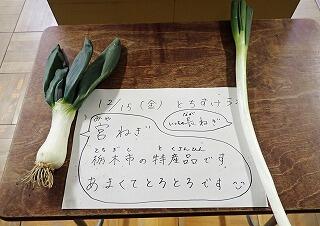 12/15(金) とろすけラン
みや
宮ねぎ
なが
いっぽん長ねぎ
とちぎし とくさんひん
栃木市の特産品です。
あまくてとろとろです